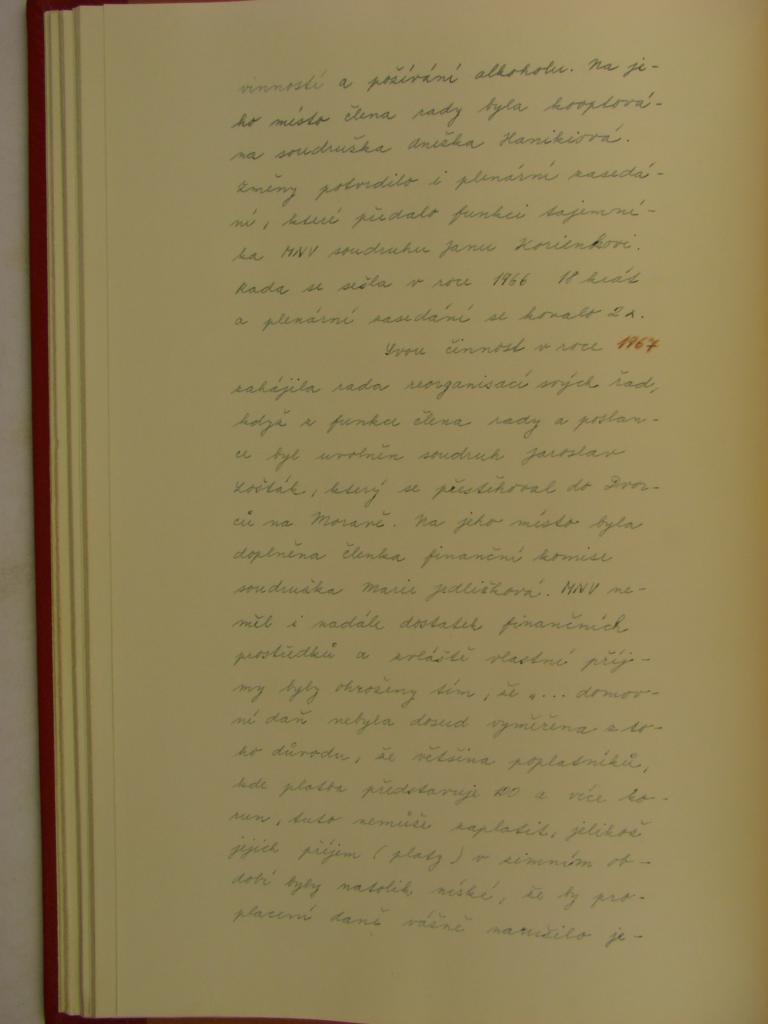 vinností a požívání alkoholu. Na je-
ho místo člena rady byla kooptová-
na soudružka Anežka Hanikiová.
Změny potvrdilo i plenární zasedá-
ní, které předalo funkci tajemní-
ka MNV soudruhu Janu Korienkovi.
Rada se sešla v roce 1966 18 krát
a plenární zasedání se konalo 2x.
Svou činnost v roce 1967
zahájila rada reorganisací svých řad,
když z funkce člena rady a poslan-
ce byl uvolněn soudruh Jaroslav
Košták, který se přestěhoval do Dvor-
ců na Moravě. Na jeho místo byla
doplněna členka finanční komise
soudružka Marie Jedličková. MNV ne-
měl i nadále dostatek finančních
prostředků a zvláště vlastní příj-
my byly ohroženy tím, že "... domov-
ní daň nebyla dosud vyměřena z to-
ho důvodu, že většina poplatníků,
kde platba představuje 100 a více ko-
run, tuto nemůže zaplatit, jelikož
jejich příjem (platy) v zimním ob-
dobí byly natolik nízké, že by pro-
placení daně vážně narušilo je-